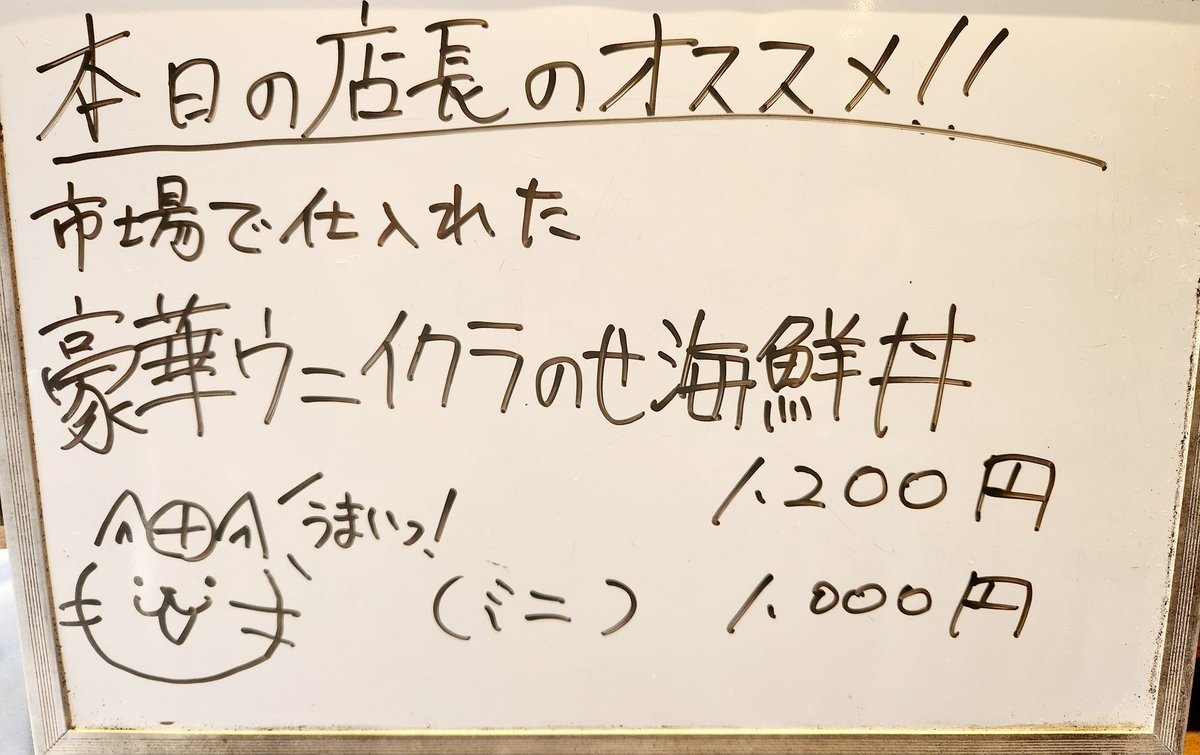 本日の店長のオススメ!!
市場で仕入れた
豪華ウニイクラのせ海鮮丼
1.200円
うまいっ!
(ミニ) 1.000円